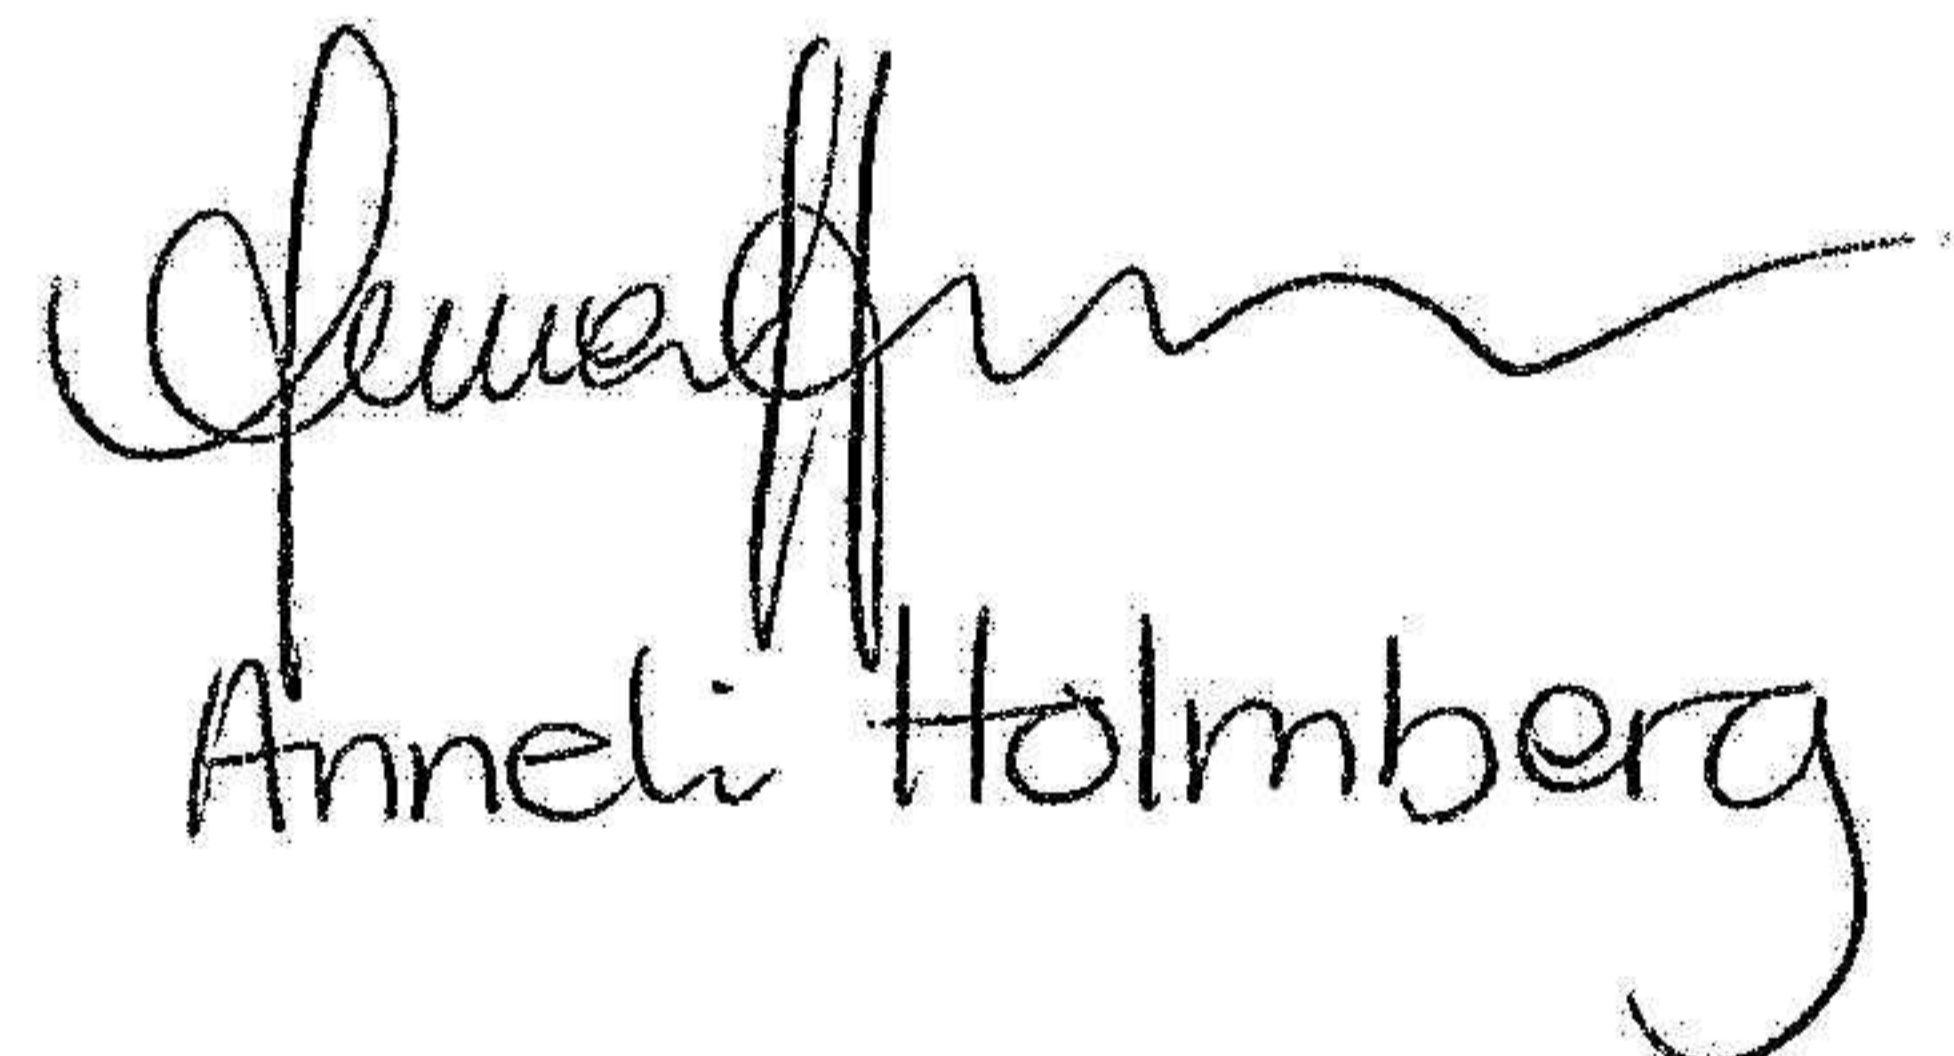 Anneli Holmberg